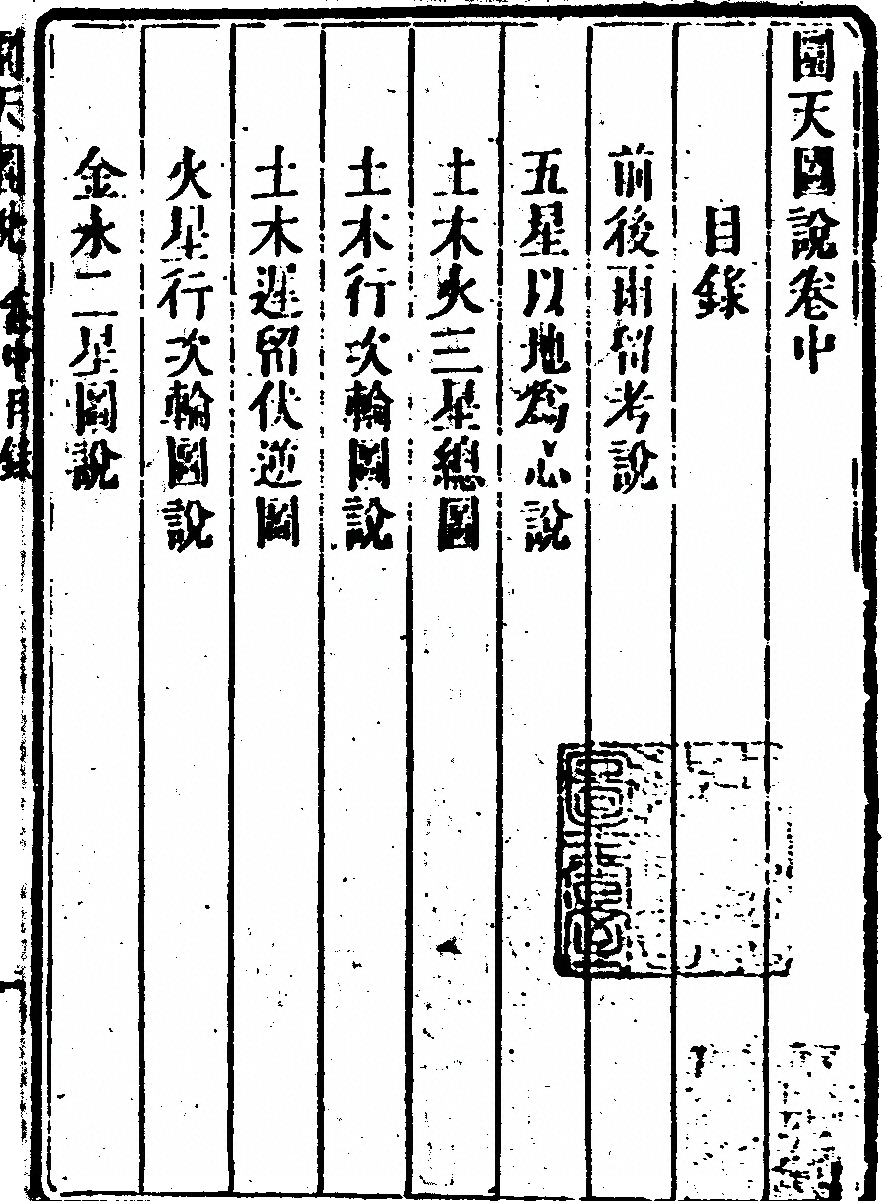 圜天圖說卷中
目錄
前後兩留考說
五星以地爲心說
土木火三星總圖
土木行次輪圖說
土木遲留伏逆圖
火星行次輪圖說
金水二星圖說
圜天圖說 卷中目錄 一